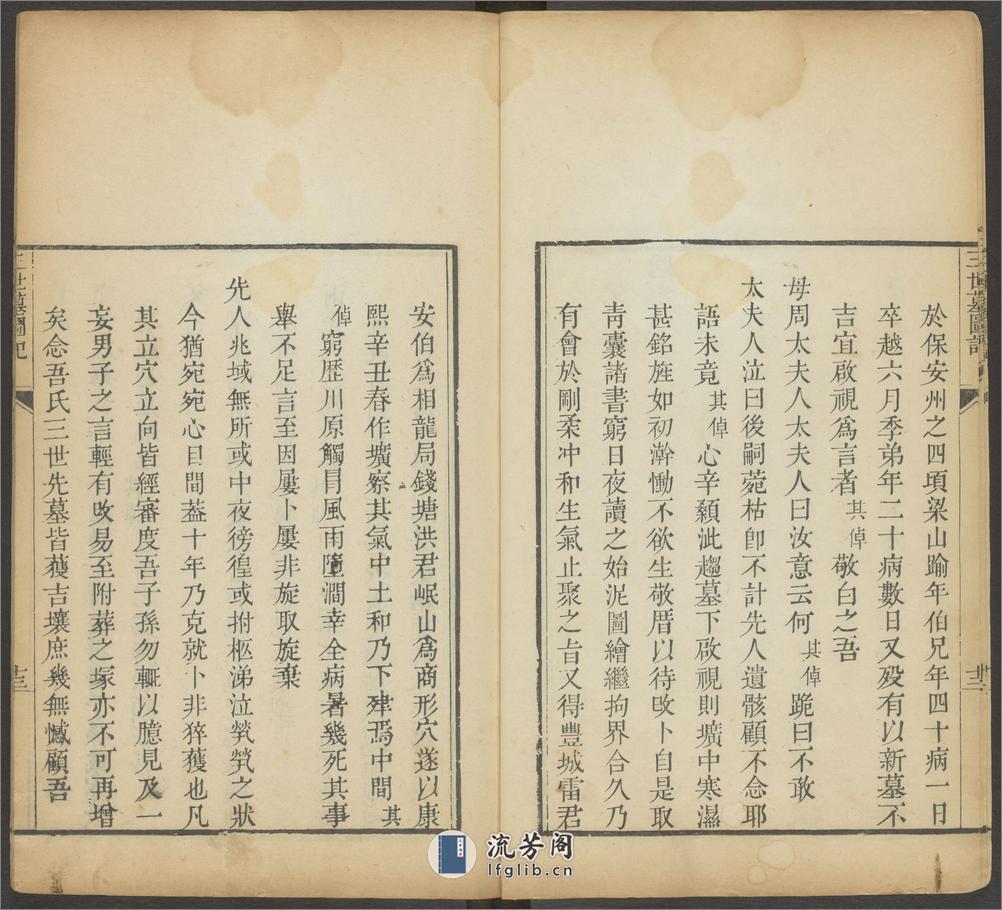 於保安州之四項梁山踰年伯兄年四十病一日
卒越六月季弟年二十病數日又歿有以新墓不
吉宜啟視爲言者其倬敬白之吾
母周太夫人太夫人曰汝意云何其倬跪曰不敢
太夫人泣曰後嗣菀枯卽不計先人遺骸顧不念耶
語未竟其倬心辛顙泚趨墓下啟視則壙中寒濕
甚銘旌如初澣慟不欲生敬厝以待改卜自是取
靑囊諸書窮日夜讀之始泥圖繪繼拘界合久乃
有會於剛柔冲和生氣止聚之旨又得豐城雷君
三世墓圖記
安伯爲相龍局錢塘洪君岷山爲商形穴遂以康
熙辛丑春作壙察其氣中土和乃下肂焉中間其
倬窮歷川原觸冒風雨墮澗幸全病暑幾死其事
舉不足言至因屢卜屢非旋取旋棄
先人兆域無所或中夜徬徨或拊柩涕泣煢煢之狀
今猶宛宛心目間葢十年乃克就卜非猝獲也凡
其立穴立向皆經審度吾子孫勿輒以臆見及一
妄男子之言輕有改易至附葬之塚亦不可再增
矣念吾氏三世先墓皆獲吉壤庶幾無憾顧吾
三世墓圖記
十三
流芳阁
lfglib.cn